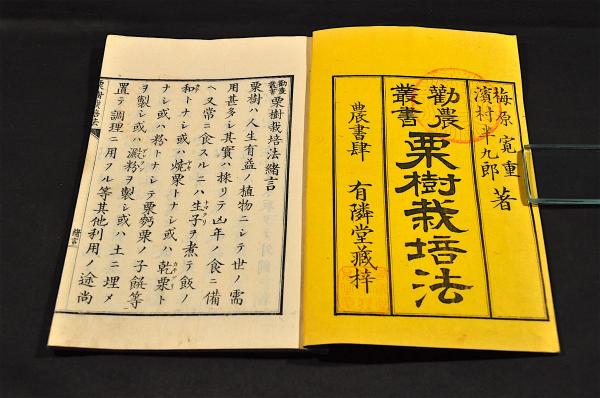 梅原寛重
濱村半九郎
著
勸農
叢書
栗樹栽培法
農書肆 有隣堂藏梓
勸農
叢書
栗樹栽培法緒言
栗樹ハ人生有益ノ植物ニシテ世ノ需
用甚多シ其實ハ採リテ凶年ノ食ニ備
ヘ又常ニ食スルニハ生子ヲ煮テ飯ノ
和トナシ或ハ燒栗トナシ或ハ乾栗ト
ナシ或ハ粉トナシテ栗粥栗ノ子餻等
ヲ製シ或ハ澱粉ヲ製シ或ハ土ニ埋メ
置テ調理ニ用フル等其他利用ノ途尚
栗樹栽培法
緒言